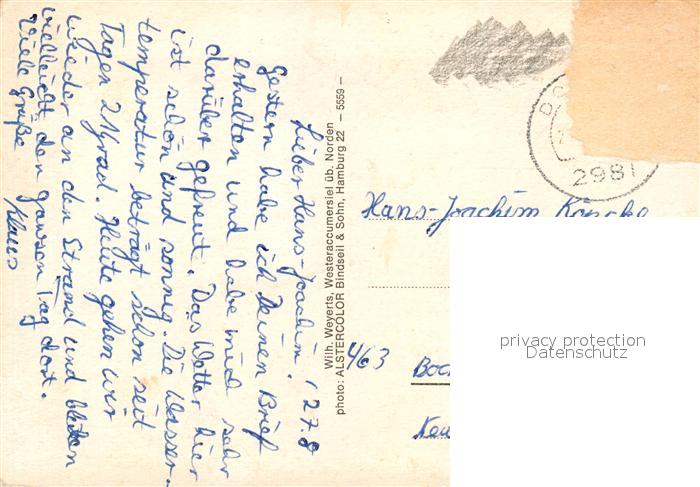 Lieber Hans-Joachim! 27.8
Gestern habe ich Deinen Brief
erhalten und habe mich sehr
darüber gefreut. Das Wetter hier
ist schön und sonnig. Die Wasser-
temperatur beträgt schon seit
Tagen 21 grad. Heute gehen wir
wieder an den Strand und bleiben
vielleicht den ganzen Tag dort.
Viele Grüße
Klaus
Wilh. Weyerts, Westeraccumersiel üb. Norden
photo: ALSTERCOLOR Bindseil & Sohn, Hamburg 22 – 5559 –
2981
Hans-Joachim
463
privacy protection
Datenschutz